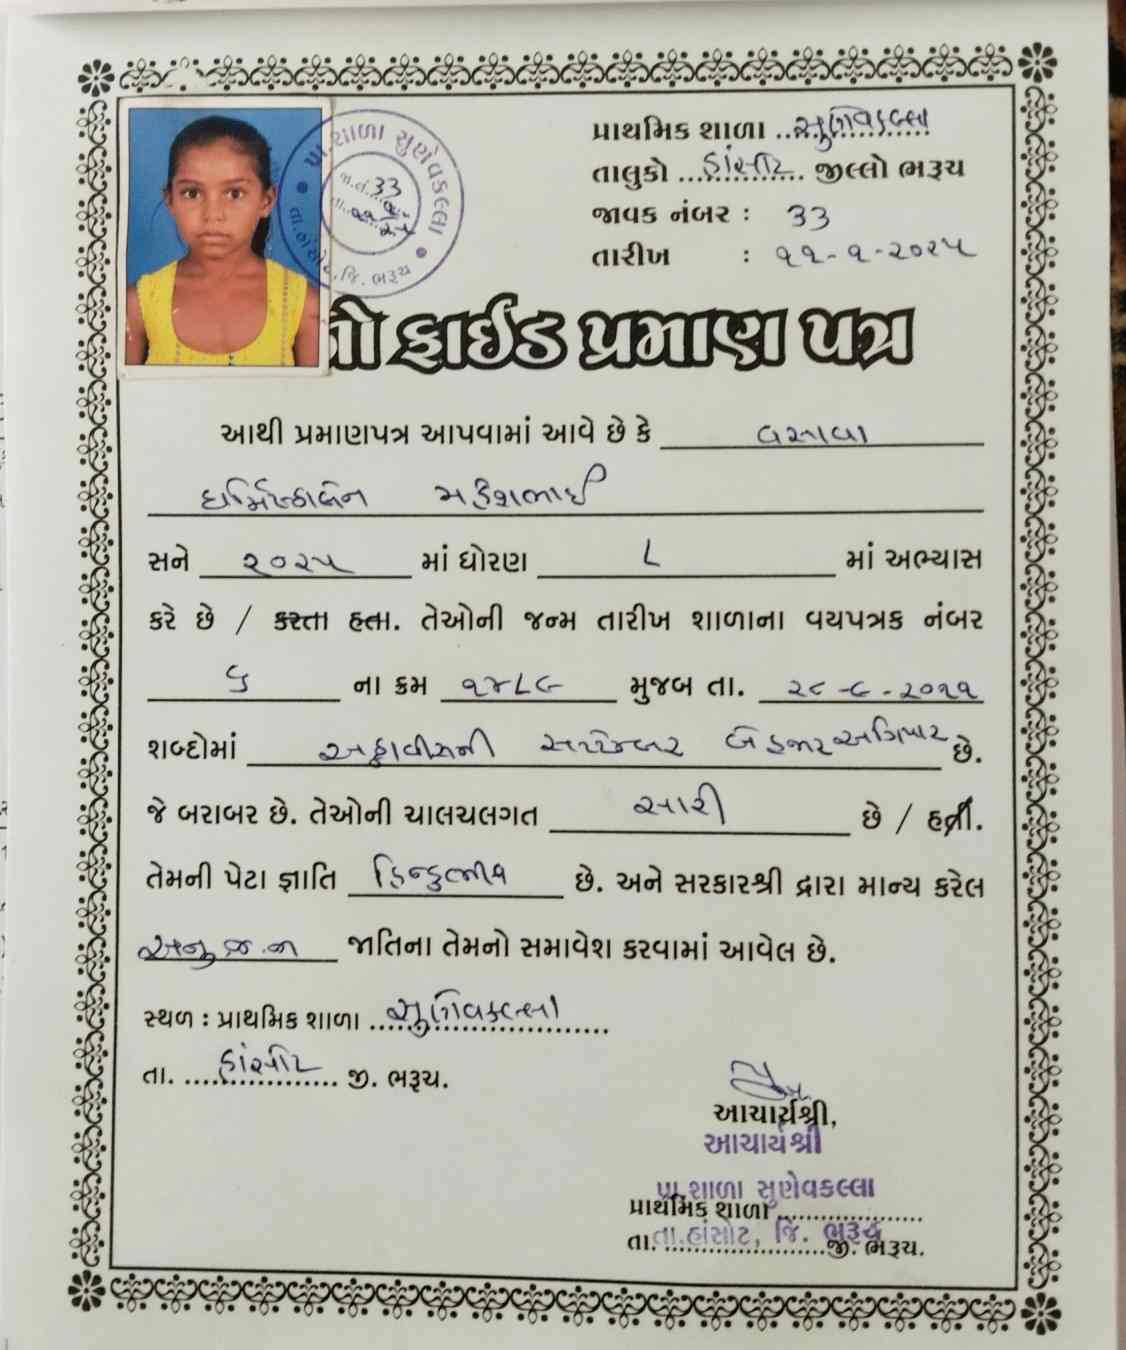 પ્રાથમિક શાળા ..સુણેવકલ્લા
તાલુકો ...હાંસોટ... જીલ્લો ભરૂચ
જાવક નંબર : 33
તારીખ : ૧૧-૧-૨૦૨૫
પ્રા.શાળા સુણેવકલ્લા
જા.નં. 33
તા. ૧૧
તા.હાંસોટ, જિ. ભરૂચ
નો ફાઈડ પ્રમાણ પત્ર
આથી પ્રમાણપત્ર આપવામાં આવે છે કે વસાવા
ધર્મિષ્ઠાબેન મહેશભાઈ
સને ૨૦૨૫ માં ધોરણ ૮ માં અભ્યાસ
કરે છે / કરતા હતા. તેઓની જન્મ તારીખ શાળાના વયપત્રક નંબર
૬ ના ક્રમ ૧૪૮૯ મુજબ તા. ૨૮-૯-૨૦૧૧
શબ્દોમાં અઠ્ઠાવીસમી સપ્ટેમ્બર બે હજાર અગિયાર છે.
જે બરાબર છે. તેઓની ચાલચલગત સારી છે / હતી.
તેમની પેટા જ્ઞાતિ હિન્દુભીલ છે. અને સરકારશ્રી દ્વારા માન્ય કરેલ
અનુ.જ.જા જાતિના તેમનો સમાવેશ કરવામાં આવેલ છે.
સ્થળ : પ્રાથમિક શાળા ..સુણેવકલ્લા
તા. ....હાંસોટ.... જી. ભરૂચ.
આચાર્યશ્રી,
આચાર્યશ્રી
પ્રા.શાળા સુણેવકલ્લા
પ્રાથમિક શાળા ....................
તા.હાંસોટ, જિ. ભરૂચ
તા. ........................જી. ભરૂચ.